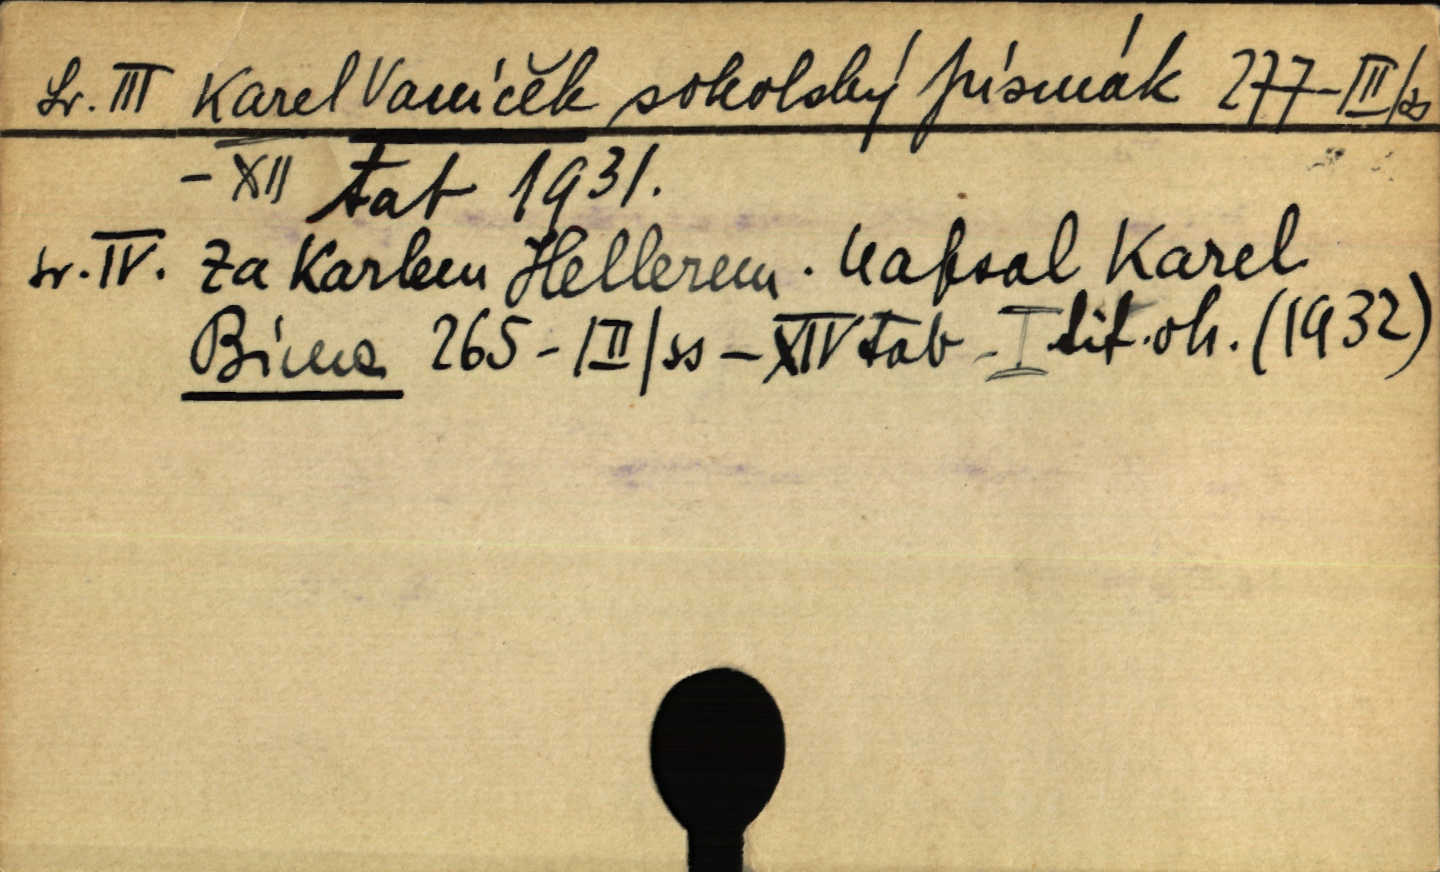 Sv. III Karel Vaníček sokolský písmák 277-III/ss
- XII tab 1931.
sv. IV. Za Karlem Hellerem. Napsal Karel
Bíma 265-III/ss - XIV tab - I tit. ob. (1932)